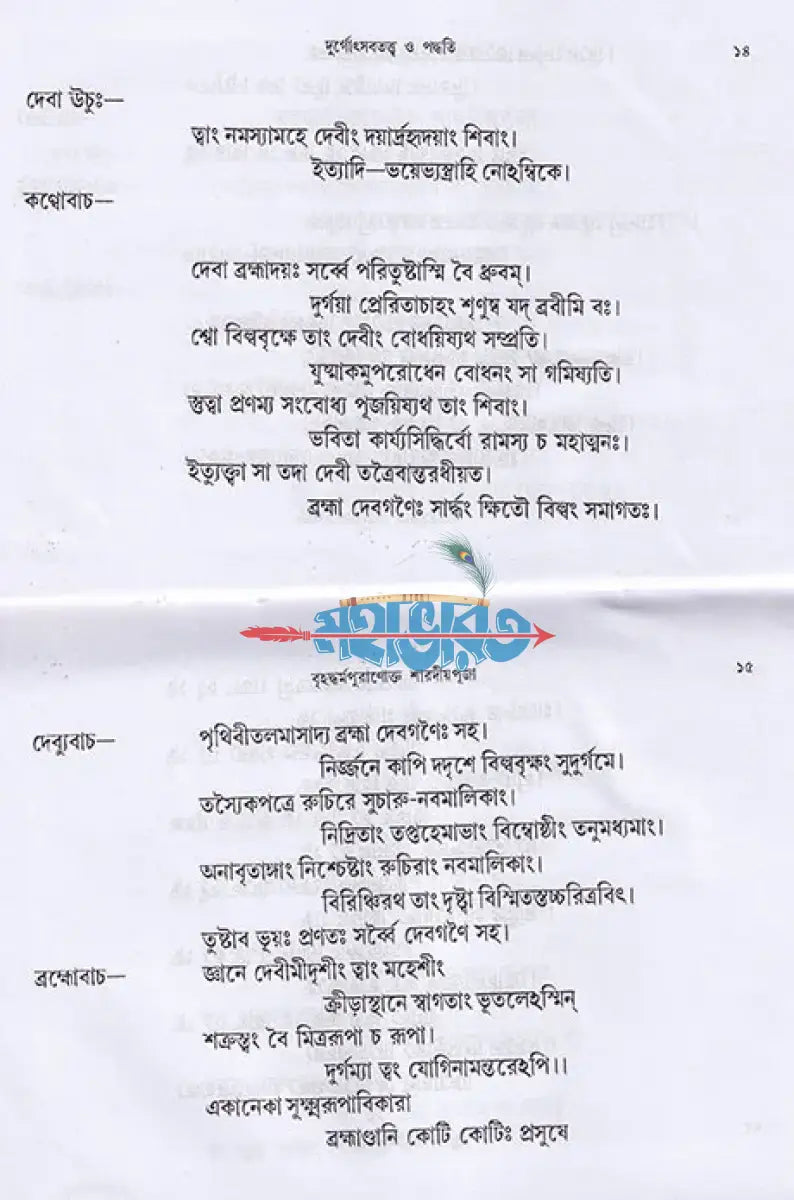 দুর্গোৎসবতত্ত্ব ও পদ্ধতি ১৪
দেবা ঊচুঃ—
ত্বাং নমস্যামহে দেবীং দয়ার্দ্রহৃদয়াং শিবাং।
ইত্যাদি—ভয়েভ্যস্ত্রাহি নোঽম্বিকে।
কণ্বোবাচ—
দেবা ব্রহ্মাদয়ঃ সর্ব্বে পরিতুষ্টাস্মি বৈ ধ্রুবম্।
দুর্গয়া প্রেরিতাচাহং শৃণুধ্ব যদ্ ব্রবীমি বঃ।
শ্বো বিল্ববৃক্ষে তাং দেবীং বোধয়িষ্যথ সম্প্রতি।
যুষ্মাকমুপরোধেন বোধনং সা গমিষ্যতি।
স্তুত্বা প্রণম্য সংবোধ্য পূজয়িষ্যথ তাং শিবাং।
ভবিতা কার্য্যসিদ্ধির্বো রামস্য চ মহাত্মনঃ।
ইত্যুক্ত্বা সা তদা দেবী তত্রৈবান্তরধীয়ত।
ব্রহ্মা দেবগণৈঃ সার্দ্ধং ক্ষিতৌ বিল্বং সমাগতঃ।
মহাভারত
বৃহদ্ধর্মপুরাণোক্ত শারদীয়পূজা ১৫
দেব্যুবাচ— পৃথিবীতলমাসাদ্য ব্রহ্মা দেবগণৈঃ সহ।
নির্জ্জনে কাপি দদৃশে বিল্ববৃক্ষং সুদুর্গমে।
তস্যৈকপত্রে রুচিরে সুচারু-নবমালিকাং।
নিদ্রিতাং তপ্তহেমাভাং বিম্বোষ্ঠীং তনুমধ্যমাং।
অনাবৃতাঙ্গাং নিশ্চেষ্টাং রুচিরাং নবমালিকাং।
বিরিঞ্চিরথ তাং দৃষ্ট্বা বিস্মিতস্তচ্চরিত্রবিৎ।
তুষ্টাব ভূয়ঃ প্রণতঃ সর্ব্বৈ দেবগণৈ সহ।
ব্রহ্মোবাচ— জ্ঞানে দেবীমীদৃশীং ত্বাং মহেশীং
ক্রীড়াস্থানে স্বাগতাং ভূতলেঽস্মিন্
শত্রুস্ত্বং বৈ মিত্ররূপা চ রূপা।
দুর্গম্যা ত্বং যোগিনামন্তরেঽপি।।
একানেকা সুক্ষ্মরূপাবিকারা
ব্রহ্মাণ্ডানি কোটি কোটিঃ প্রসুষে